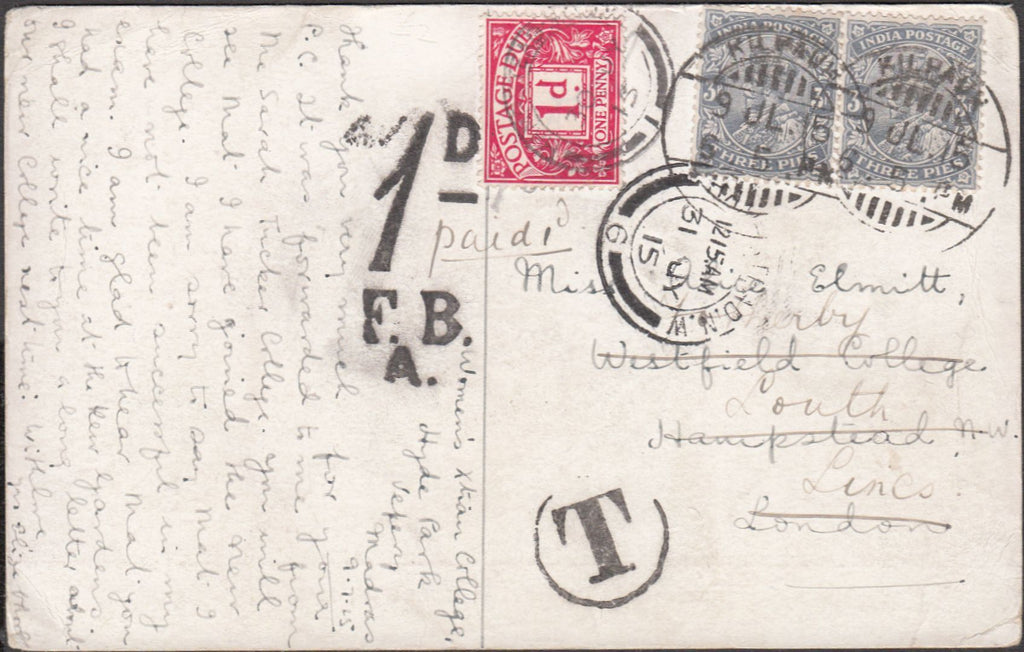 Women's Xtian College,
Hyde Park
Vepery
Madras
9.7.15
Thank you very much for your
P.C. It was forwarded to me from
the Sarah Tucker College. You will
see that I have joined the new
College. I am sorry to say that I
have not been successful in my
exam. I am glad to hear that you
had a nice time at the Kew Gardens.
I shall write to you a long letter about
our new College next time. With love
1D
F.B.
A.
paid 1d
POSTAGE DUE
1d.
ONE PENNY
INDIA POSTAGE
3
3
THREE PIES
KILPAUK
9 JL
15
PM
INDIA POSTAGE
3
3
THREE PIES
KILPAUK
9 JL
PM
N.W.
12.15AM
31 JY
15
6
Miss Elmitt,
Westfield College
Hampstead N.W.
London
Louth
Lincs.
T